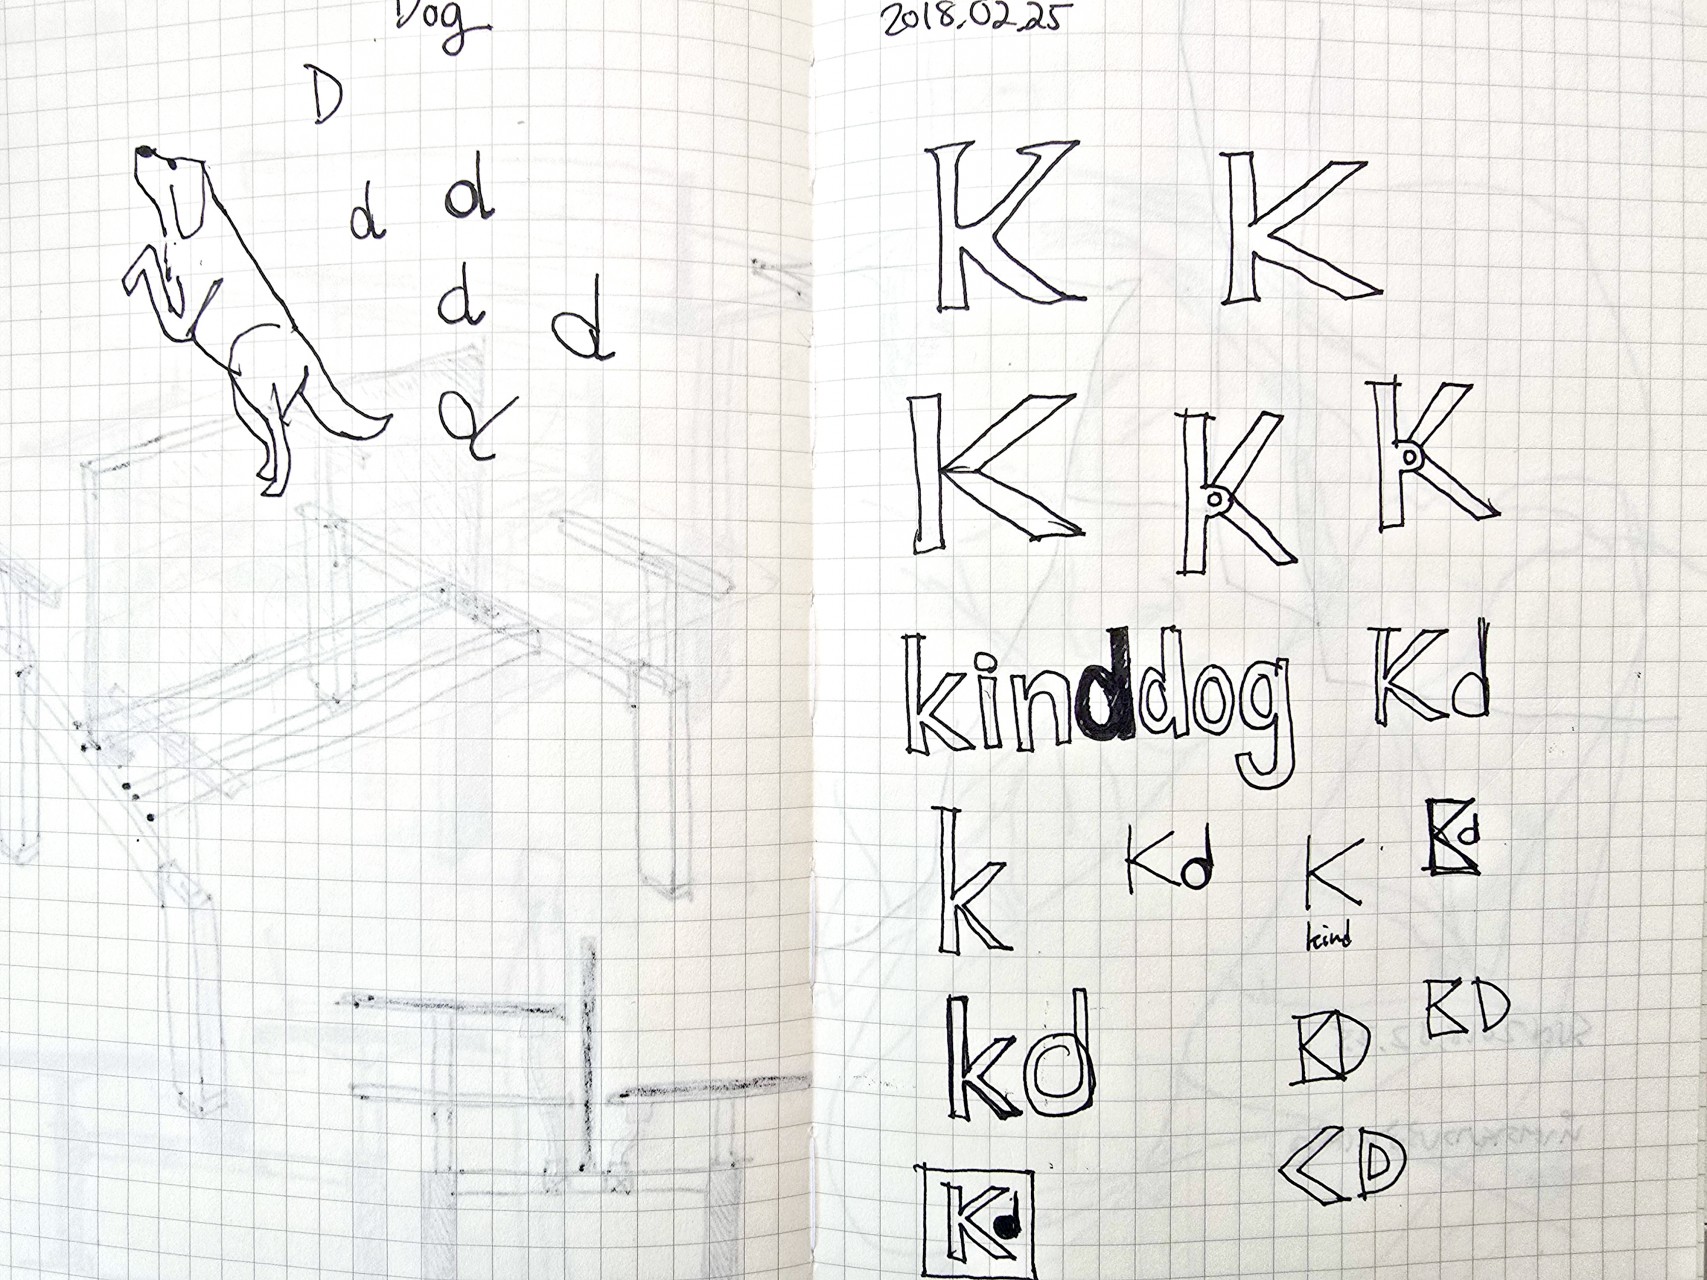 Dog
D
d d
d d
d
2018.02.25
K K
K K K
kinddog Kd
k Kd K Kd
kind
kd KD KD
<D
Kd